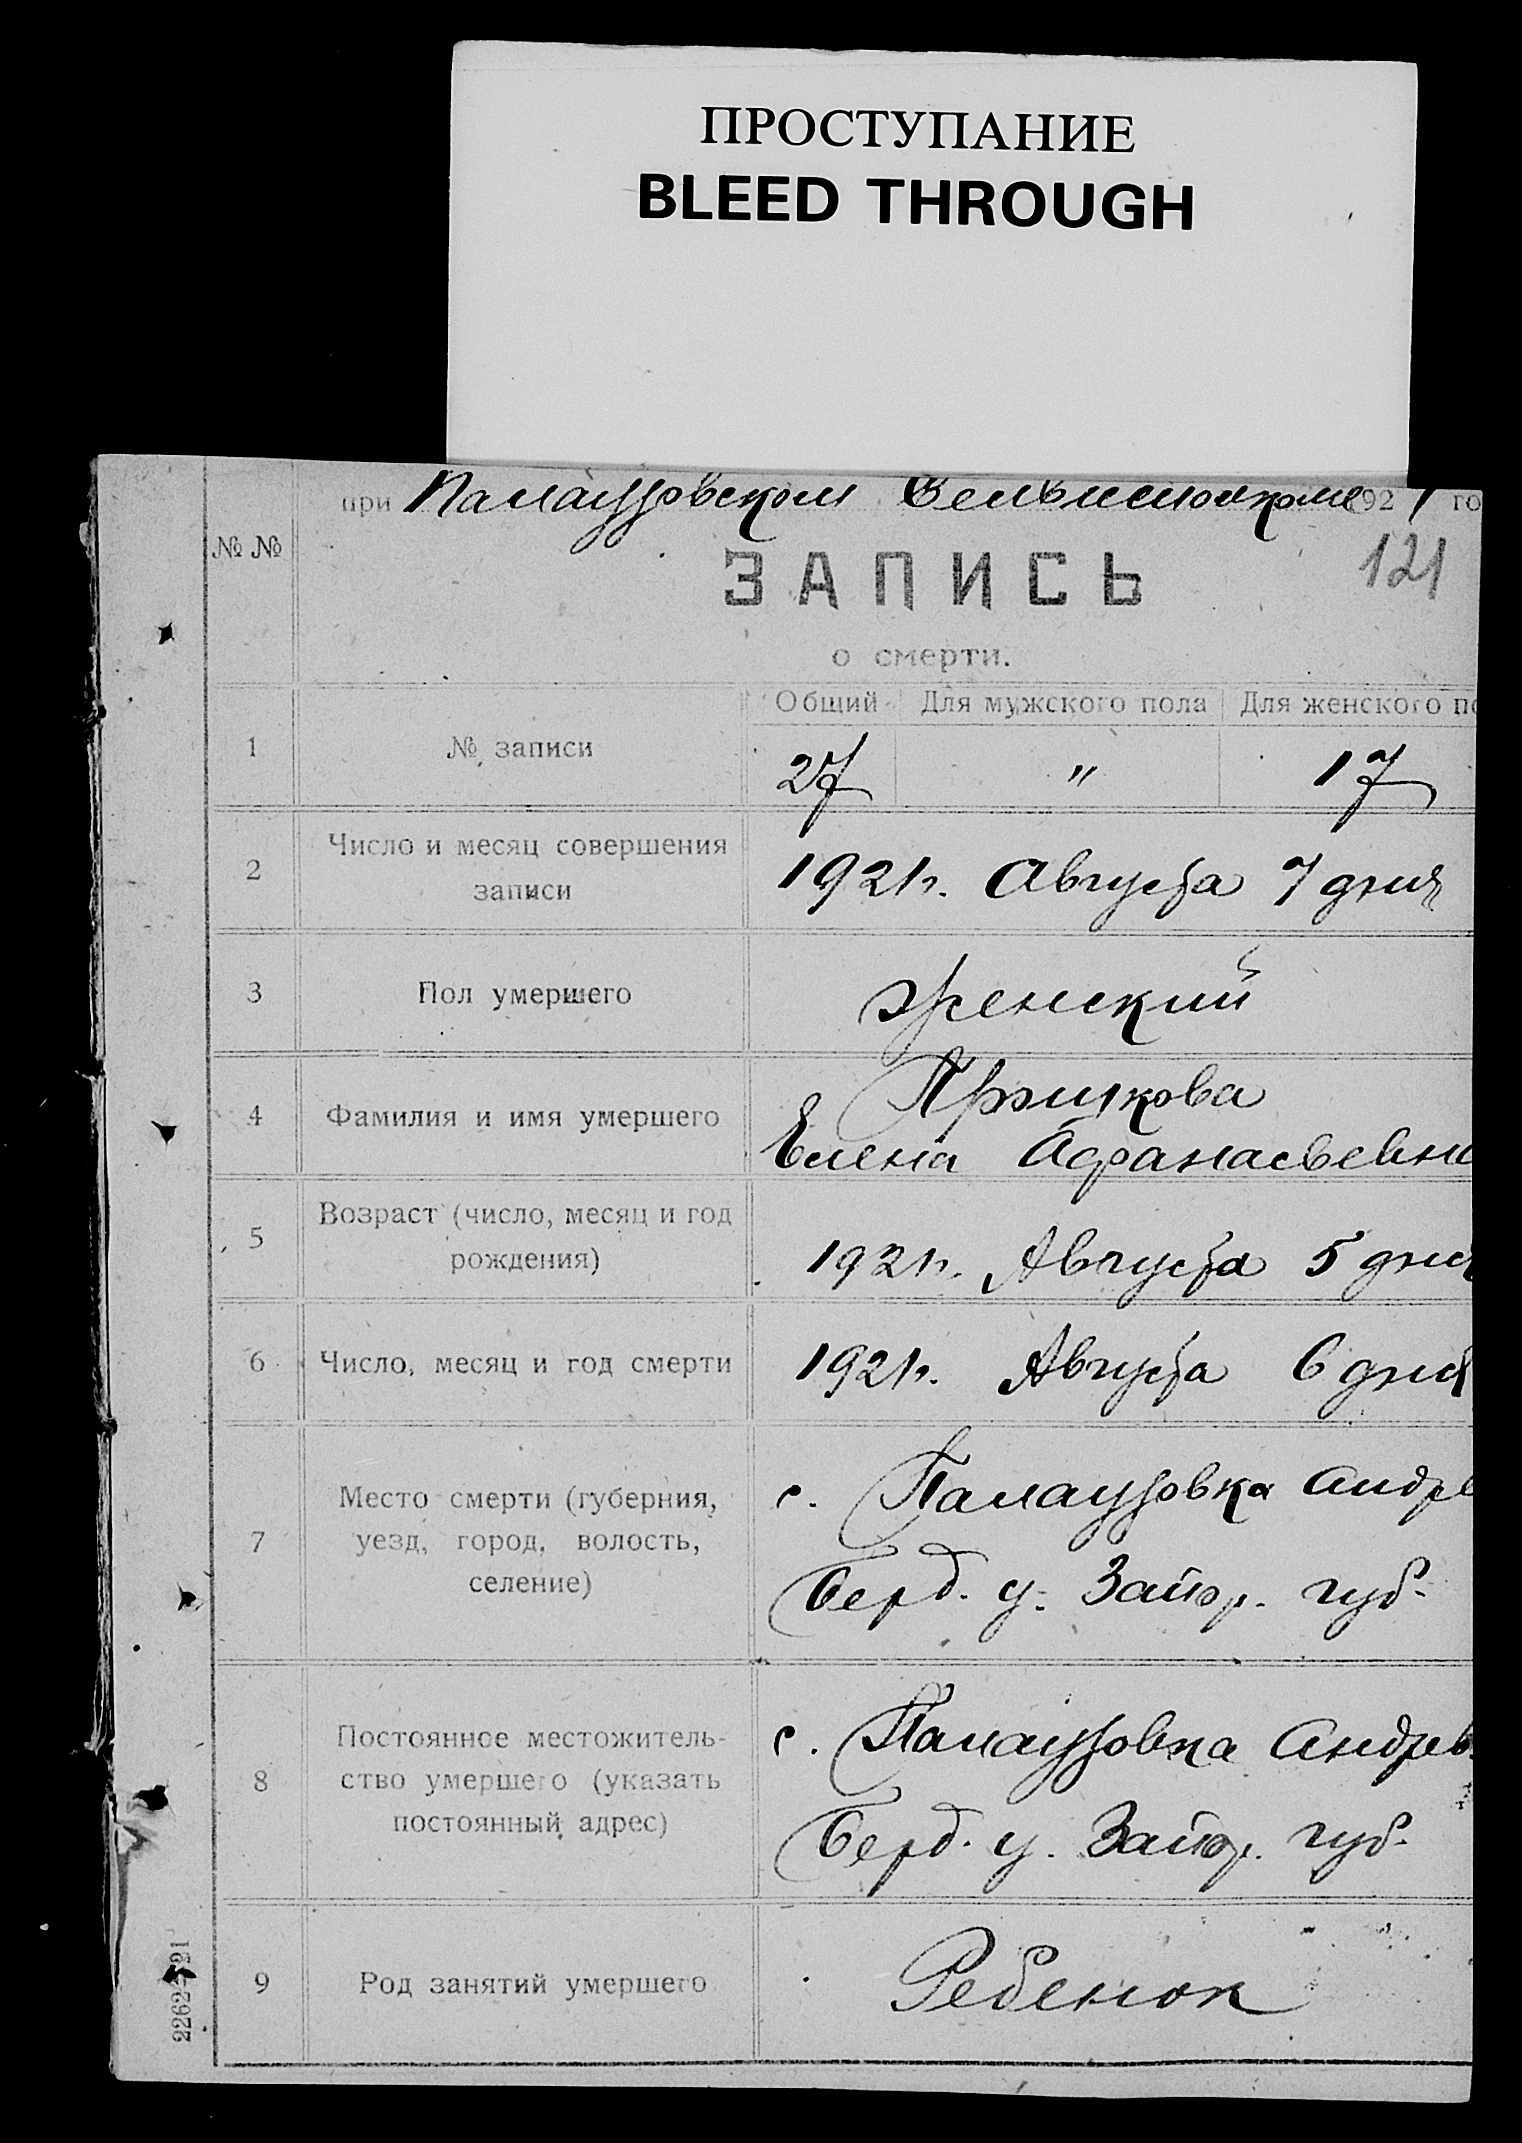 ПРОСТУПАНИЕ
BLEED THROUGH
при Палаузовском Сельисполкоме 1921 го
№ №
121
ЗАПИСЬ
о смерти.
Общий Для мужского пола Для женского по
1 № записи 27 " 17
2 Число и месяц совершения записи
1921 г. Августа 7 дня
3 Пол умершего Женский
4 Фамилия и имя умершего
Елена Афанасьевна
5 Возраст (число, месяц и год рождения)
1921 г. Августа 5 дня
6 Число, месяц и год смерти 1921 г. Августа 6 дня
7 Место смерти (губерния, уезд, город, волость, селение)
с. Палаузовка Андре
Берд. у. Запор. губ.
8 Постоянное местожитель-
ство умершего (указать
постоянный адрес)
с. Палаузовка Андрев
Берд. у. Запор. губ.
9 Род занятий умершего Ребенок